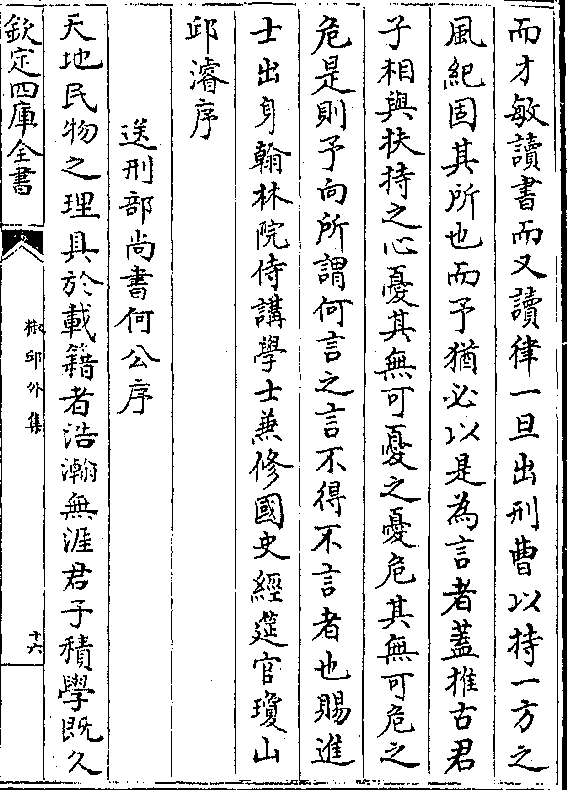 而才敏讀書而又讀律一旦出刑曹以持一方之
風紀固其所也而予猶必以是為言者蓋推古君
子相與扶持之心憂其無可憂之憂危其無可危之
危是則予向所謂何言之言不得不言者也賜進
士出身翰林院侍講學士兼修國史經筵官瓊山
邱濬序
送刑部尚書何公序
天地民物之理具於載籍者浩瀚無涯君子積學既久
欽定四庫全書
椒邱外集
十六